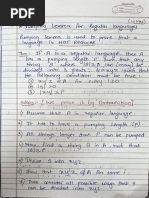 * Pumping Lemma for Regular Languages
Pumping Lemma is used to prove that a
language is NOT REGULAR
Thm: If A is a regular language, then A
has a pumping length 'P' such that any
string 's' where |s| ≥ P may be
divided into 3 parts s = xyz such that
the following conditions must be true:
① xyⁱz ∈ A for every i ≥ 0
② |y| > 0
③ |xy| ≤ P
(we prove it by contradiction)
Assume that A is regular
It has to have a pumping length (P)
All strings longer than P can be pumped
Now find a string 's' in A such that |s| ≥ P
Divide S into xyz
Show that xyⁱz ∉ A for some i
Then consider all possible ways that S can be
divided into xyz